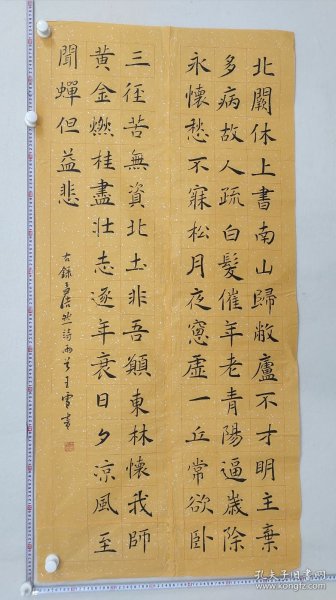 北闕休上書南山歸敝廬不才明主棄
多病故人疏白髮催年老青陽逼歲除
永懷愁不寐松月夜窻虚一丘常欲卧
三徑苦無資北土非吾願東林懷我師
黄金燃桂盡壯志逐年衰日夕涼風至
聞蟬但益悲
古錄孟浩然詩兩首王雪
孔夫子旧书网